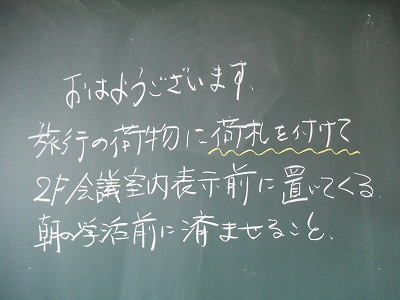 おはようございます。
旅行の荷物に荷札を付けて
2F会議室内表示前に置いてくる。
朝の学活前に済ませること。